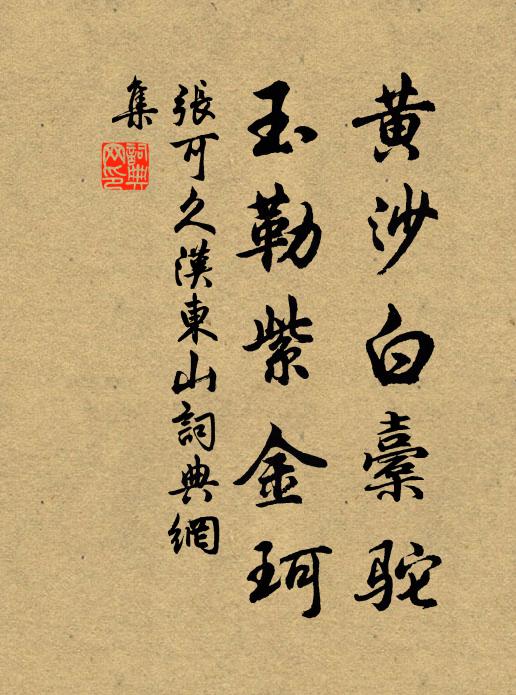 黄沙白橐駝
玉勒紫金珂
張可久漢東山詞典網
集
詞典網印